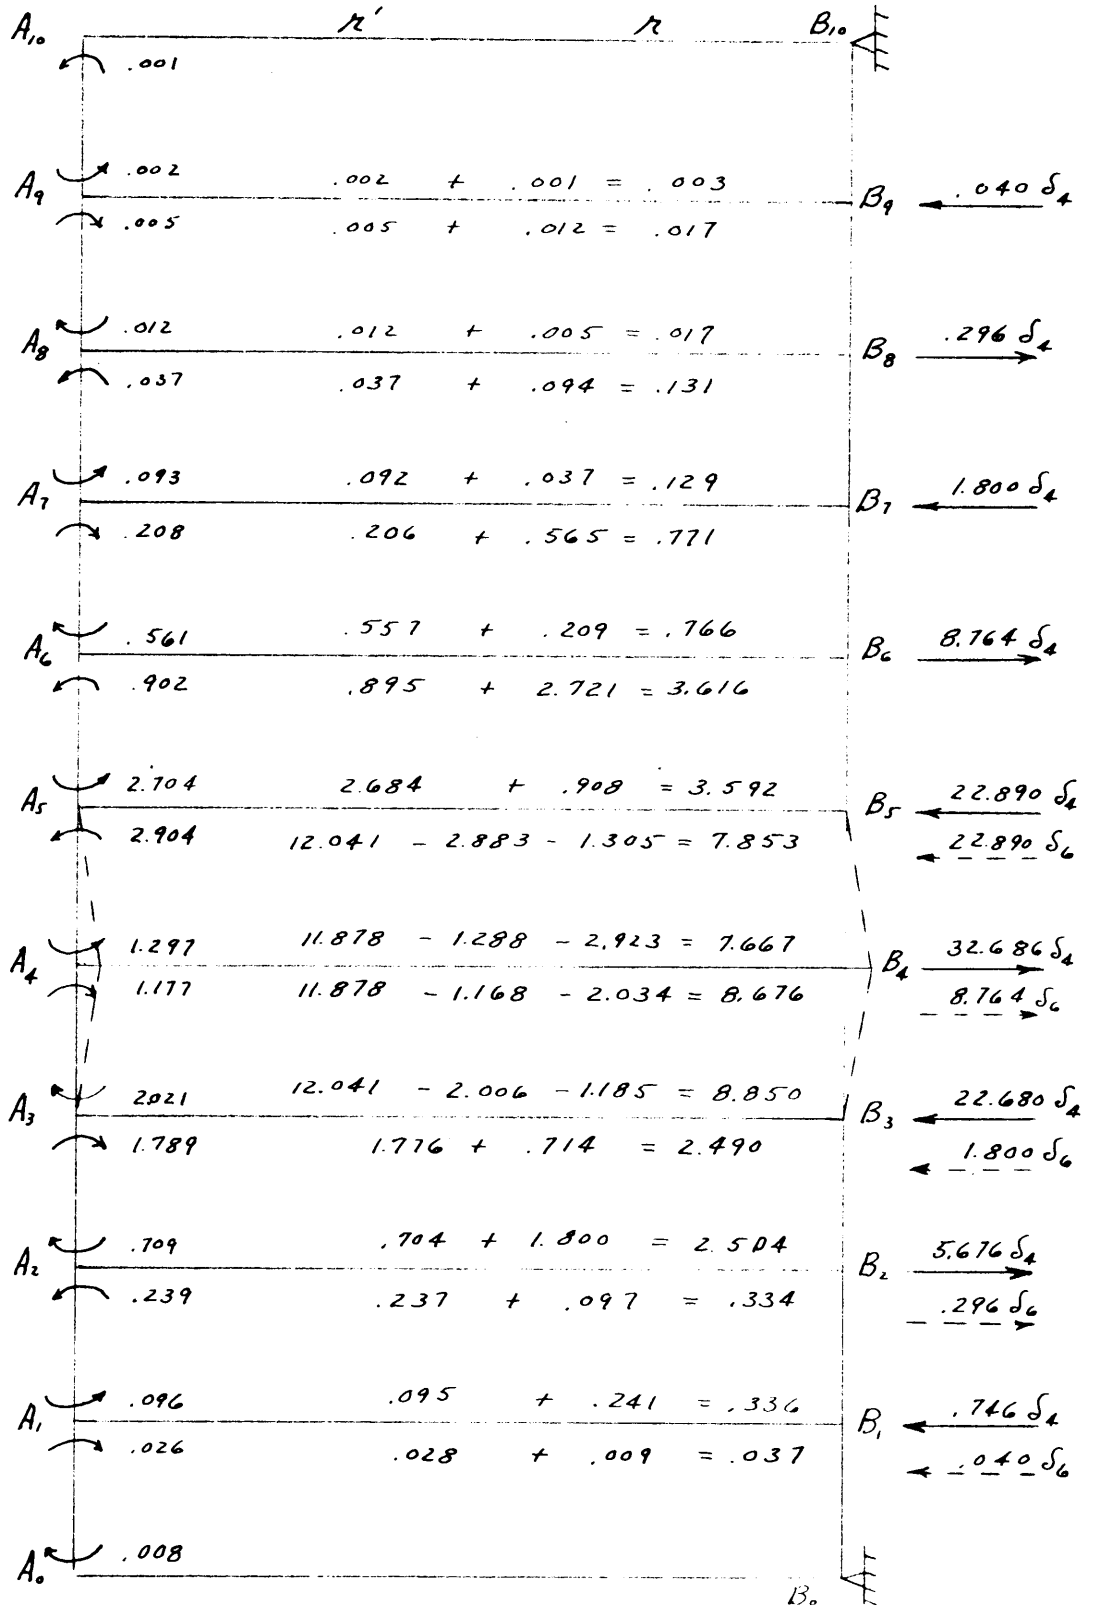 A₁₀ r' r B₁₀
.001
A₉ .002 .002 + .001 = .003 B₉ .040 δ₄
.005 .005 + .012 = .017
A₈ .012 .012 + .005 = .017 B₈ .296 δ₄
.037 .037 + .094 = .131
A₇ .093 .092 + .037 = .129 B₇ 1.800 δ₄
.208 .206 + .565 = .771
A₆ .561 .557 + .209 = .766 B₆ 8.764 δ₄
.902 .895 + 2.721 = 3.616
A₅ 2.704 2.684 + .908 = 3.592 B₅ 22.890 δ₄
2.904 12.041 - 2.883 - 1.305 = 7.853 22.890 δ₆
A₄ 1.297 11.878 - 1.288 - 2.923 = 7.667 B₄ 32.686 δ₄
1.177 11.878 - 1.168 - 2.034 = 8.676 8.764 δ₆
A₃ 2.021 12.041 - 2.006 - 1.185 = 8.850 B₃ 22.680 δ₄
1.789 1.776 + .714 = 2.490 1.800 δ₆
A₂ .709 .704 + 1.800 = 2.504 B₂ 5.676 δ₄
.239 .237 + .097 = .334 .296 δ₆
A₁ .096 .095 + .241 = .336 B₁ .746 δ₄
.026 .028 + .009 = .037 .040 δ₆
A₀ .008
B₀